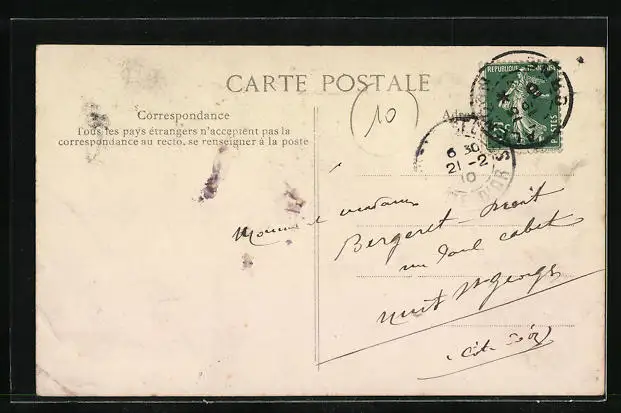 CARTE POSTALE
Correspondance
Tous les pays étrangers n'acceptent pas la
correspondance au recto, se renseigner à la poste
10
REPUBLIQUE FRANÇAISE
POSTES
6 30
21 - 2
10
D'OR
Monsieur et madame
Bergeret
nuit St georges
(Côte d'Or)